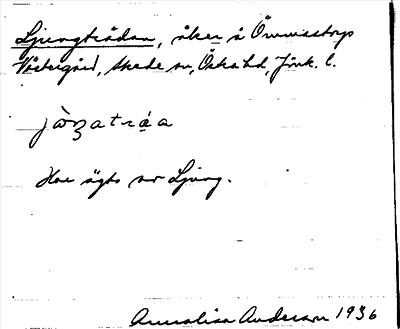 Ljungträdan, åker å Ömmestorp
Västergård, Skede sn, Östra hd, Jönk. l.
jòŋatráa
Har ägts av Ljung.
Annalisa Anderson 1936